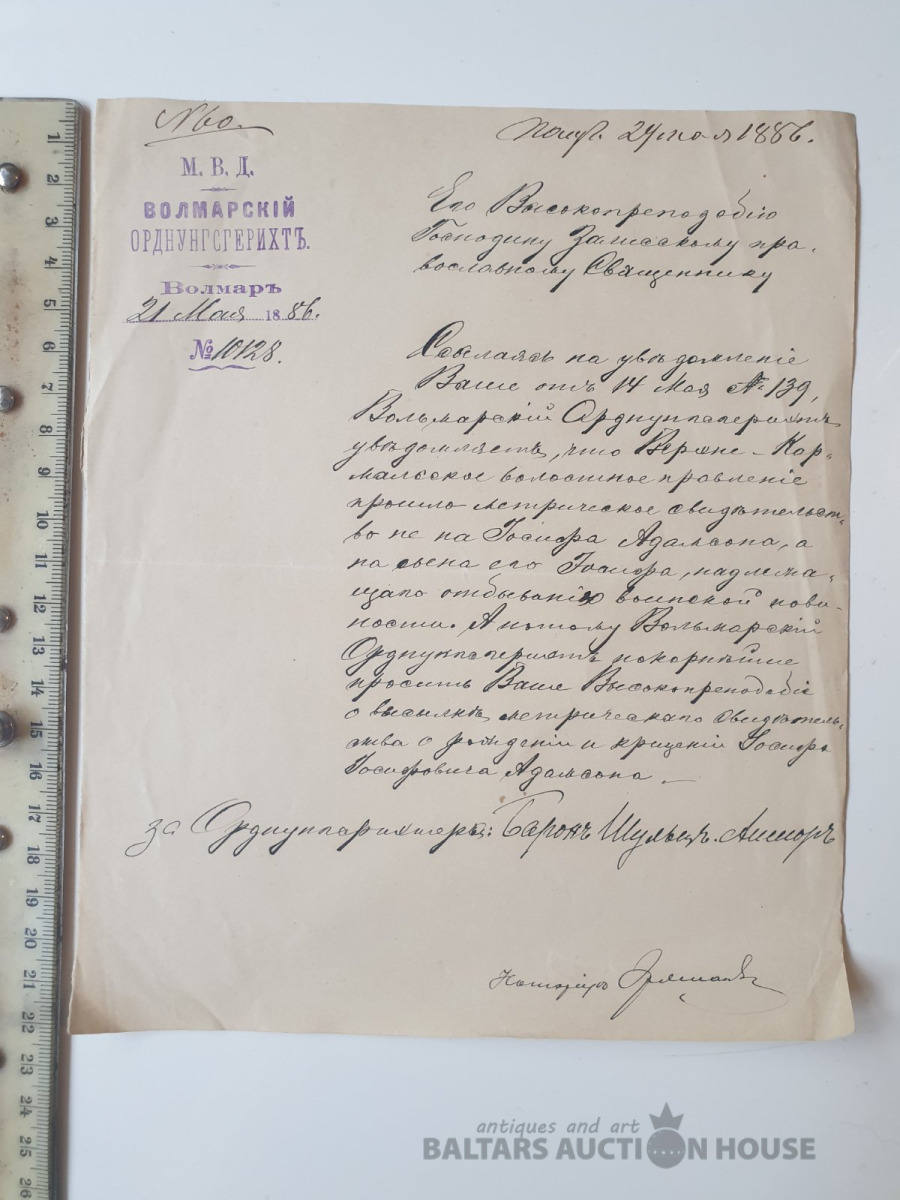 № 60.
Получ. 24 мая 1886.
М. В. Д.
ВОЛМАРСКІЙ
ОРДНУНГСГЕРИХТЪ.
Волмаръ
21 Мая 1886.
№ 10128.
Его Высокопреподобію
Господину Залисскому пра-
вославному Священнику
Ссылаясь на увѣдомленіе
Ваше отъ 14 Мая № 139,
Вольмарскій Орднунгсгерихтъ
увѣдомляетъ, что Верхне-Кор-
мальское волостное правленіе
просило метрическое свидѣтельст-
во не на Іосифа Адамсона, а
на сына его Іосифа, надлежа-
щаго отбыванію воинской пови-
ности. А потому Вольмарскій
Орднунгсгерихтъ покорнѣйше
проситъ Ваше Высокопреподобіе
о высылкѣ метрическаго свидѣтель-
ства о рожденіи и крещеніи Іосифа
Іосифовича Адамсона.
за Орднунгсрихтера: Баронъ Шульцъ-Ашерадъ
Нотаріусъ
antiques and art
BALTARS AUCTION HOUSE
1
2
3
4
5
6
7
8
9
10
11
12
13
14
15
16
17
18
19
20
21
22
23
24
25
26